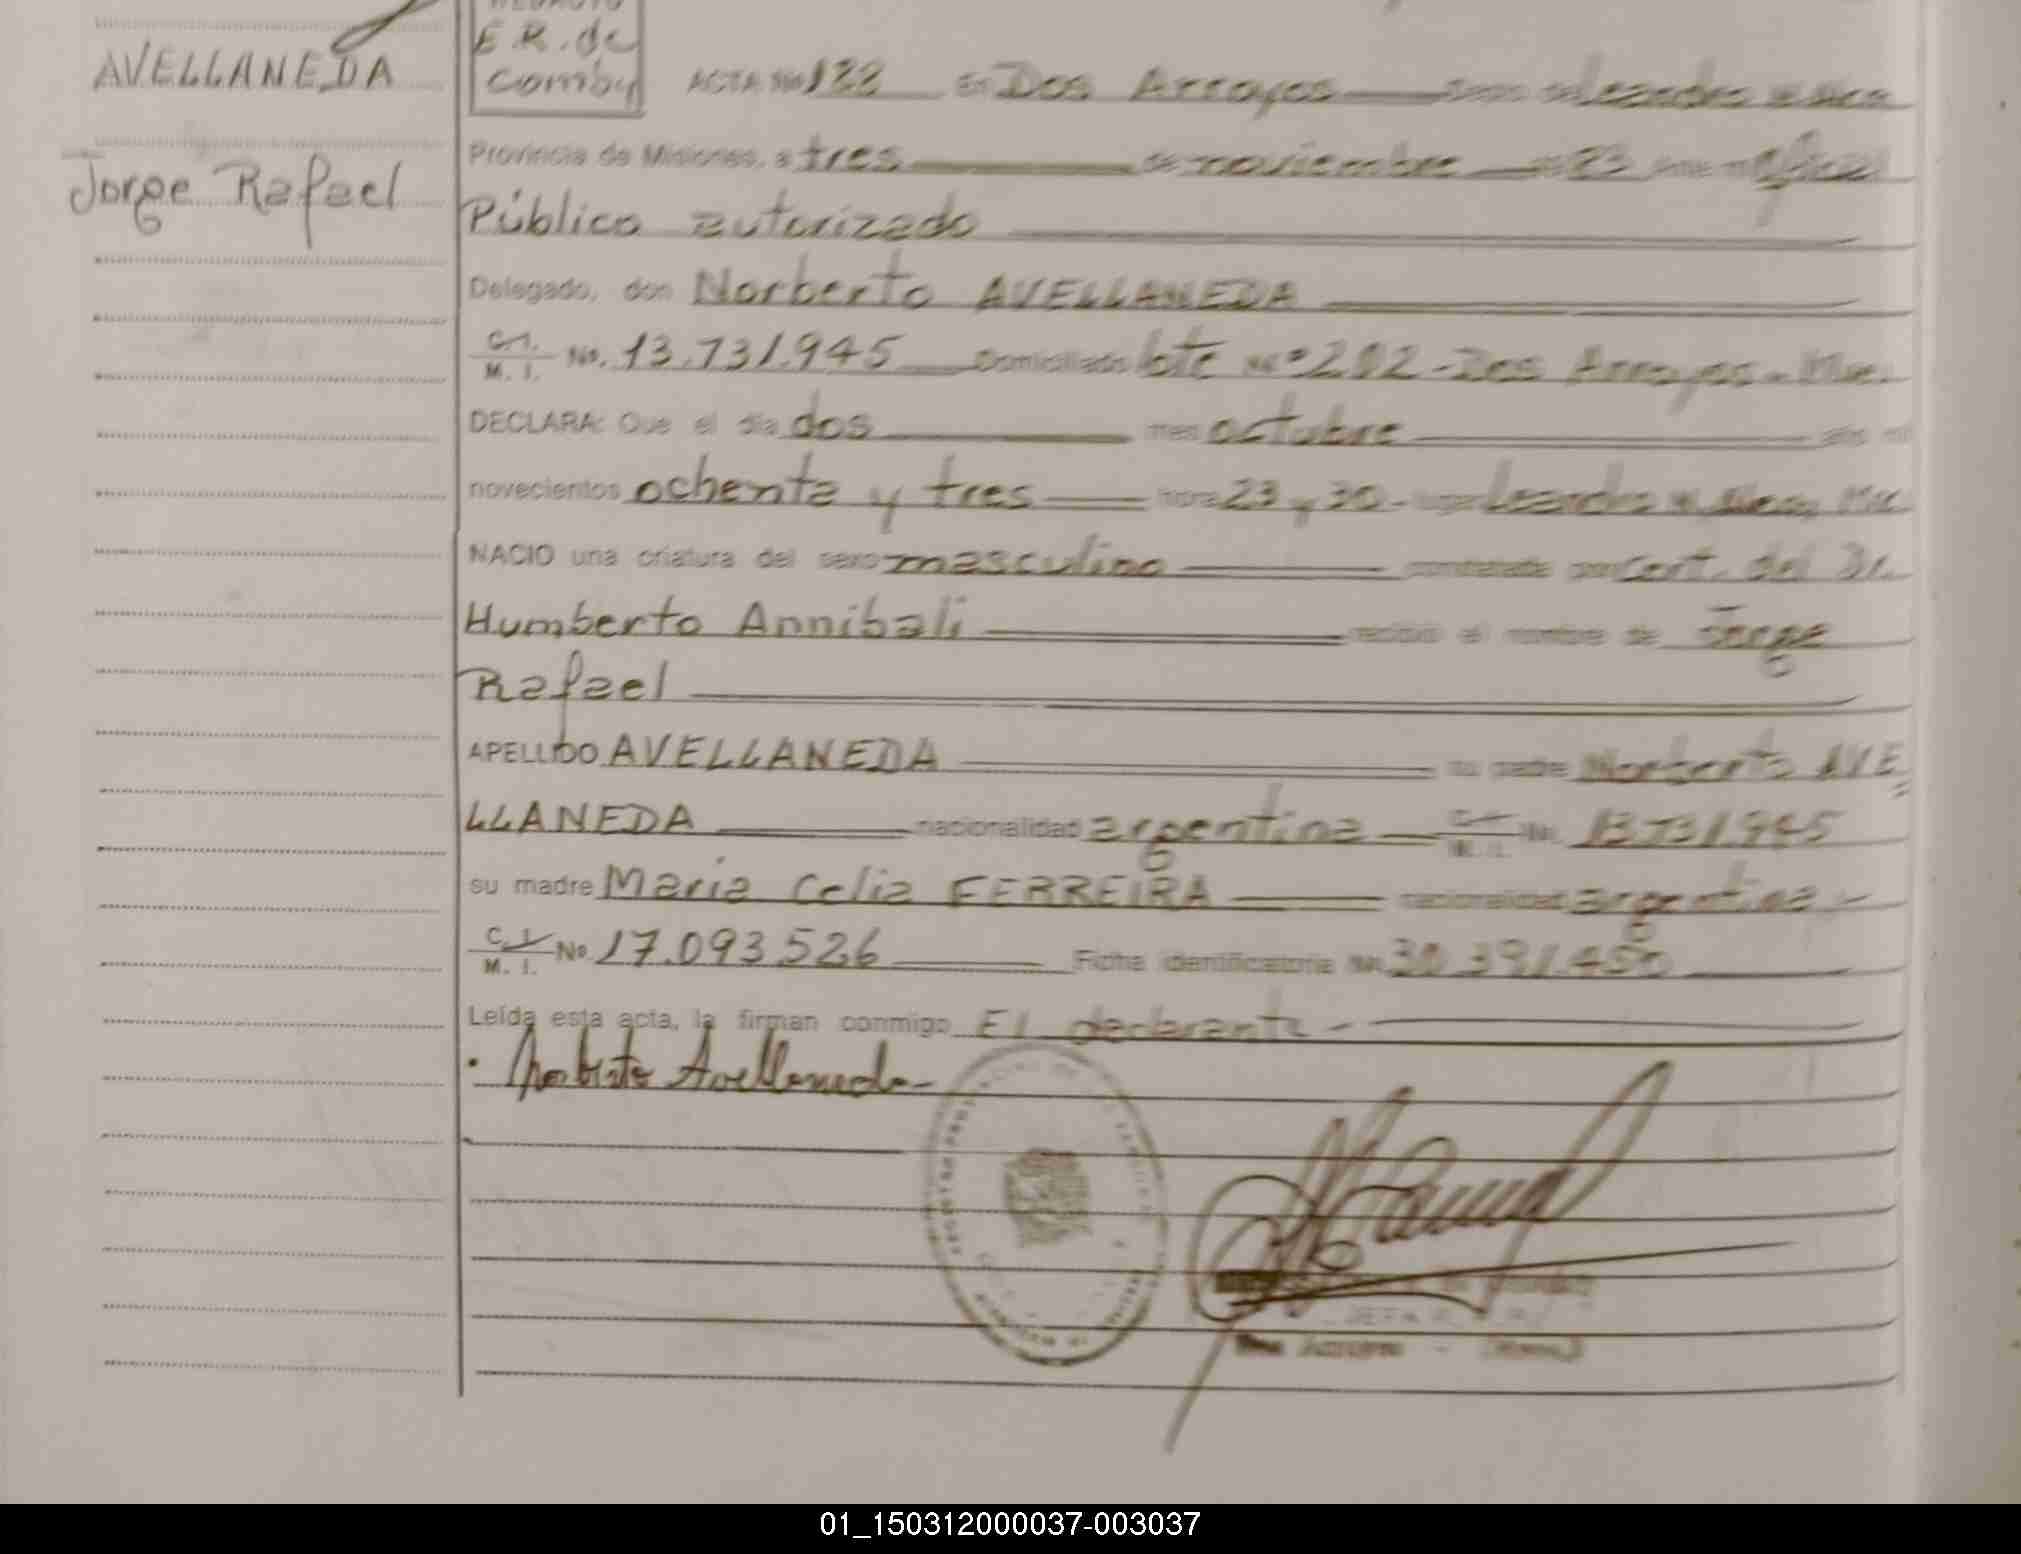 AVELLANEDA
Jorge Rafael
REDACTO
E.R. de
Comby
ACTA No 122 En Dos Arroyos Leandro N. Alem
Provincia de Misiones, a tres de noviembre de 83 ante mi Oficial
Público autorizado
Delegado, don Norberto AVELLANEDA
C. I.
M. I. No. 13.731.945 Domiciliado lote Nº 202 - Dos Arroyos - Mnes.
DECLARA: Que el día dos mes octubre año mil
novecientos ochenta y tres hora 23 y 30 - lugar Leandro N. Alem, Mnes.
NACIO una criatura del sexo masculino constatada por cert. del Dr.
Humberto Annibali recibió el nombre de Jorge
Rafael
APELLIDO AVELLANEDA su padre Norberto AVE
LLANEDA nacionalidad argentina C. I. M. I. No. 13.731.945
su madre Maria Celia FERREIRA nacionalidad argentina -
C. I.
M. I. No 17.093.526 Ficha identificatoria No. 30.391.450
Leída esta acta, la firman conmigo El declarante -
Norberto Avellaneda
Dos Arroyos - (Mnes.)
01_150312000037-003037